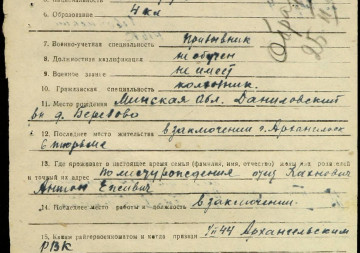 6. Образование 4 кл
7. Военно-учетная специальность Призывник
8. Должностная квалификация не обучен
9. Военное звание не имеет
10. Гражданская специальность колхозник.
11. Место рождения Минская обл. Даниловский
д. Веревово
12. Последнее место жительства в заключении г. Архангельск
13. Где проживает в настоящее время семья (фамилия, имя, отчество) жены или родителей
и точный их адрес по месту рождения отец Кахнович
Антон
14. Последнее место работы и должность в заключении.
15. Каким райгорвоенкоматом и когда призван 44 Архангельским
РВК